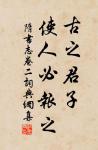 古之君子
使人必報之
隋書志卷二詞典網喜